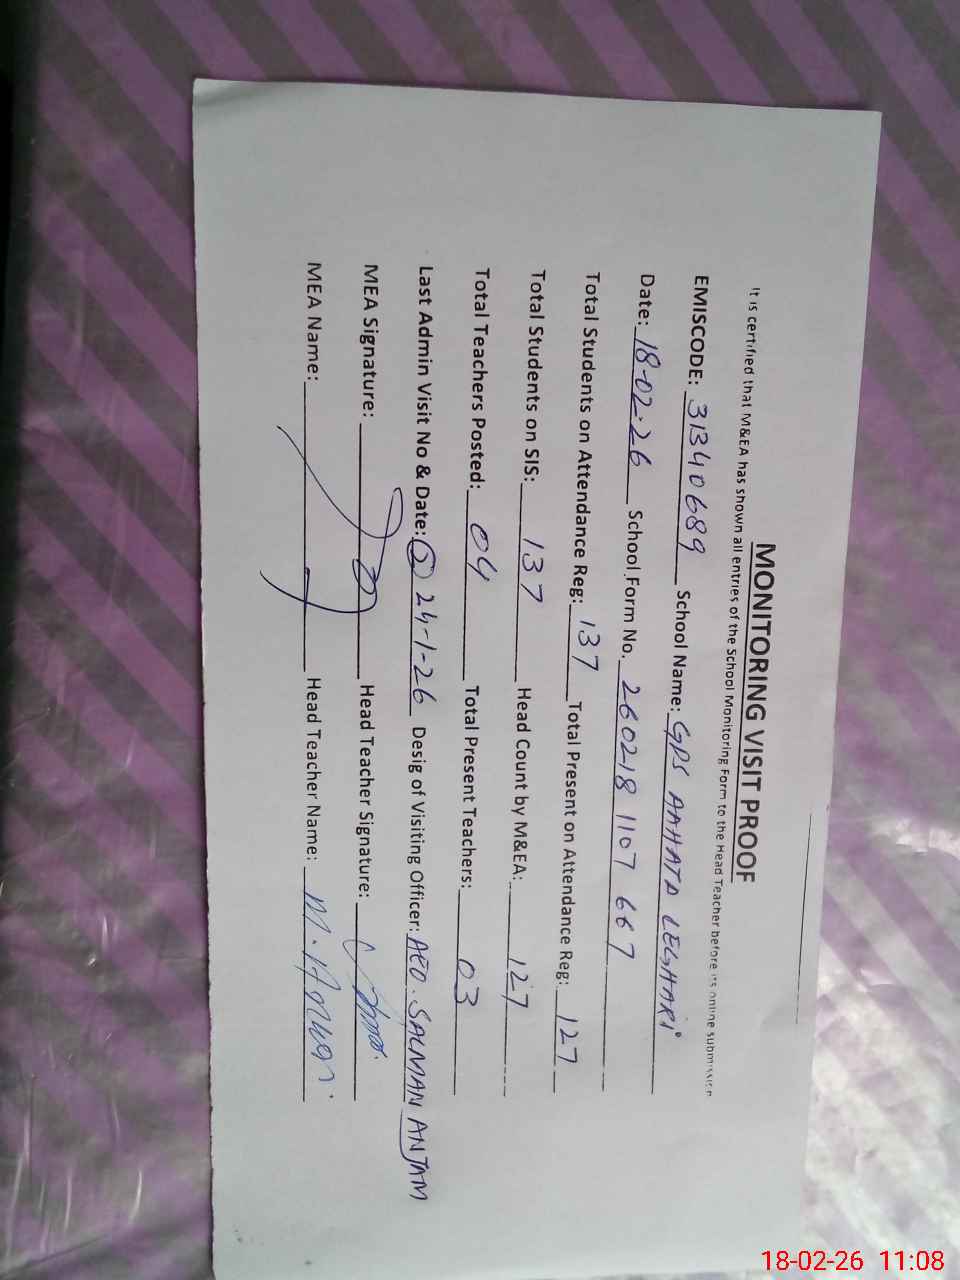 MONITORING VISIT PROOF
It is certified that M&EA has shown all entries of the School Monitoring Form to the Head Teacher before its online submission
EMISCODE: 31340689 School Name: GPS AAHATA LEGHARI
Date: 18-02-26 School Form No. 260218 1107 667
Total Students on Attendance Reg: 137 Total Present on Attendance Reg: 127
Total Students on SIS: 137 Head Count by M&EA: 127
Total Teachers Posted: 04 Total Present Teachers: 03
Last Admin Visit No & Date: 5 24-1-26 Desig of Visiting Officer: AEO. SALMAN ANJAM
MEA Signature: Head Teacher Signature:
MEA Name: Head Teacher Name: M. Anwar
18-02-26 11:08